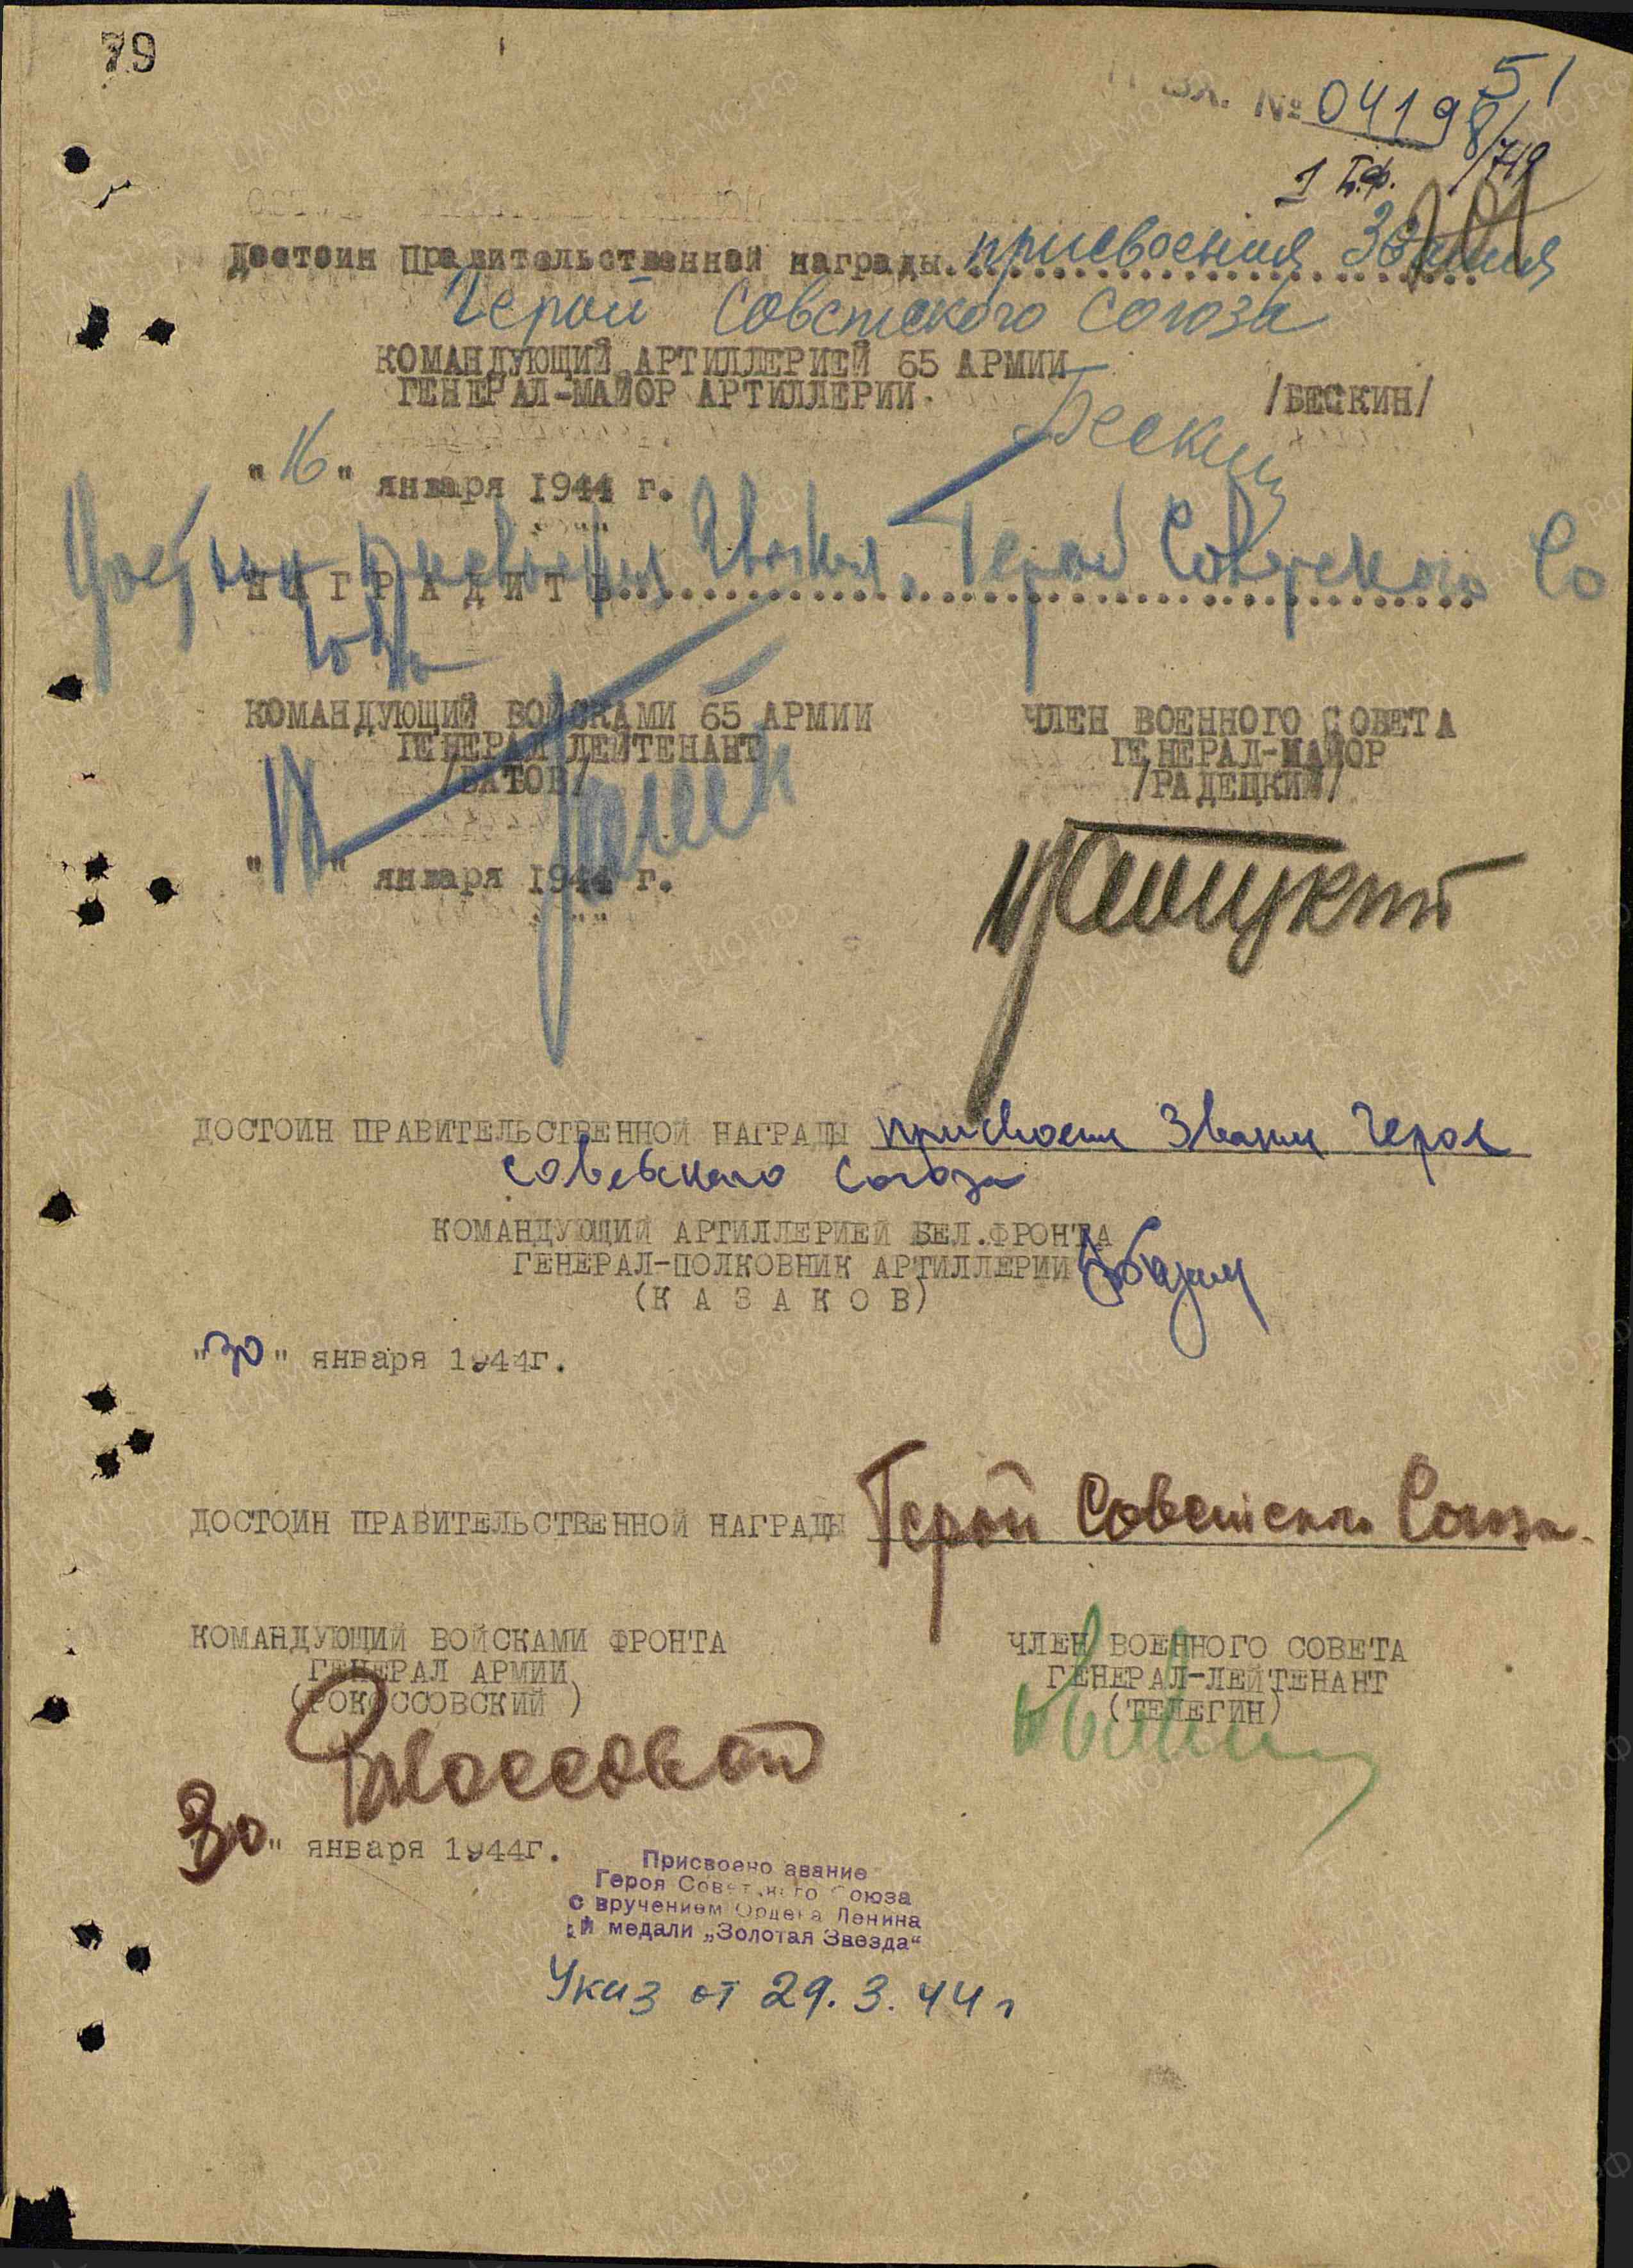 79
51
Вх. № 04198/
1 Б.Ф. /719
Достоин Правительственной награды. присвоения Звания
Герой Советского Союза
КОМАНДУЮЩИЙ АРТИЛЛЕРИЕЙ 65 АРМИИ
ГЕНЕРАЛ-МАЙОР АРТИЛЛЕРИИ. /БЕСКИН/
Бескин
"16" января 1944 г.
Достоин присвоения Звания Герой Советского Со
НАГРАДИТЬ
юза
КОМАНДУЮЩИЙ ВОЙСКАМИ 65 АРМИИ
ГЕНЕРАЛ ЛЕЙТЕНАНТ
/БАТОВ/
ЧЛЕН ВОЕННОГО СОВЕТА
ГЕНЕРАЛ-МАЙОР
/РАДЕЦКИЙ/
" " января 1944 г.
Радецкий
ДОСТОИН ПРАВИТЕЛЬСТВЕННОЙ НАГРАДЫ присвоения Звания Героя
Советского Союза
КОМАНДУЮЩИЙ АРТИЛЛЕРИЕЙ БЕЛ.ФРОНТА
ГЕНЕРАЛ-ПОЛКОВНИК АРТИЛЛЕРИИ
(К А З А К О В)
"30" января 1944г.
ДОСТОИН ПРАВИТЕЛЬСТВЕННОЙ НАГРАДЫ Герой Советского Союза.
КОМАНДУЮЩИЙ ВОЙСКАМИ ФРОНТА
ГЕНЕРАЛ АРМИИ
(РОКОССОВСКИЙ )
Рокоссовский
ЧЛЕН ВОЕННОГО СОВЕТА
ГЕНЕРАЛ-ЛЕЙТЕНАНТ
(ТЕЛЕГИН)
"30" января 1944г.
Присвоено звание
Героя Советского Союза
с вручением Ордена Ленина
и медали „Золотая Звезда“
Указ от 29.3.44 г